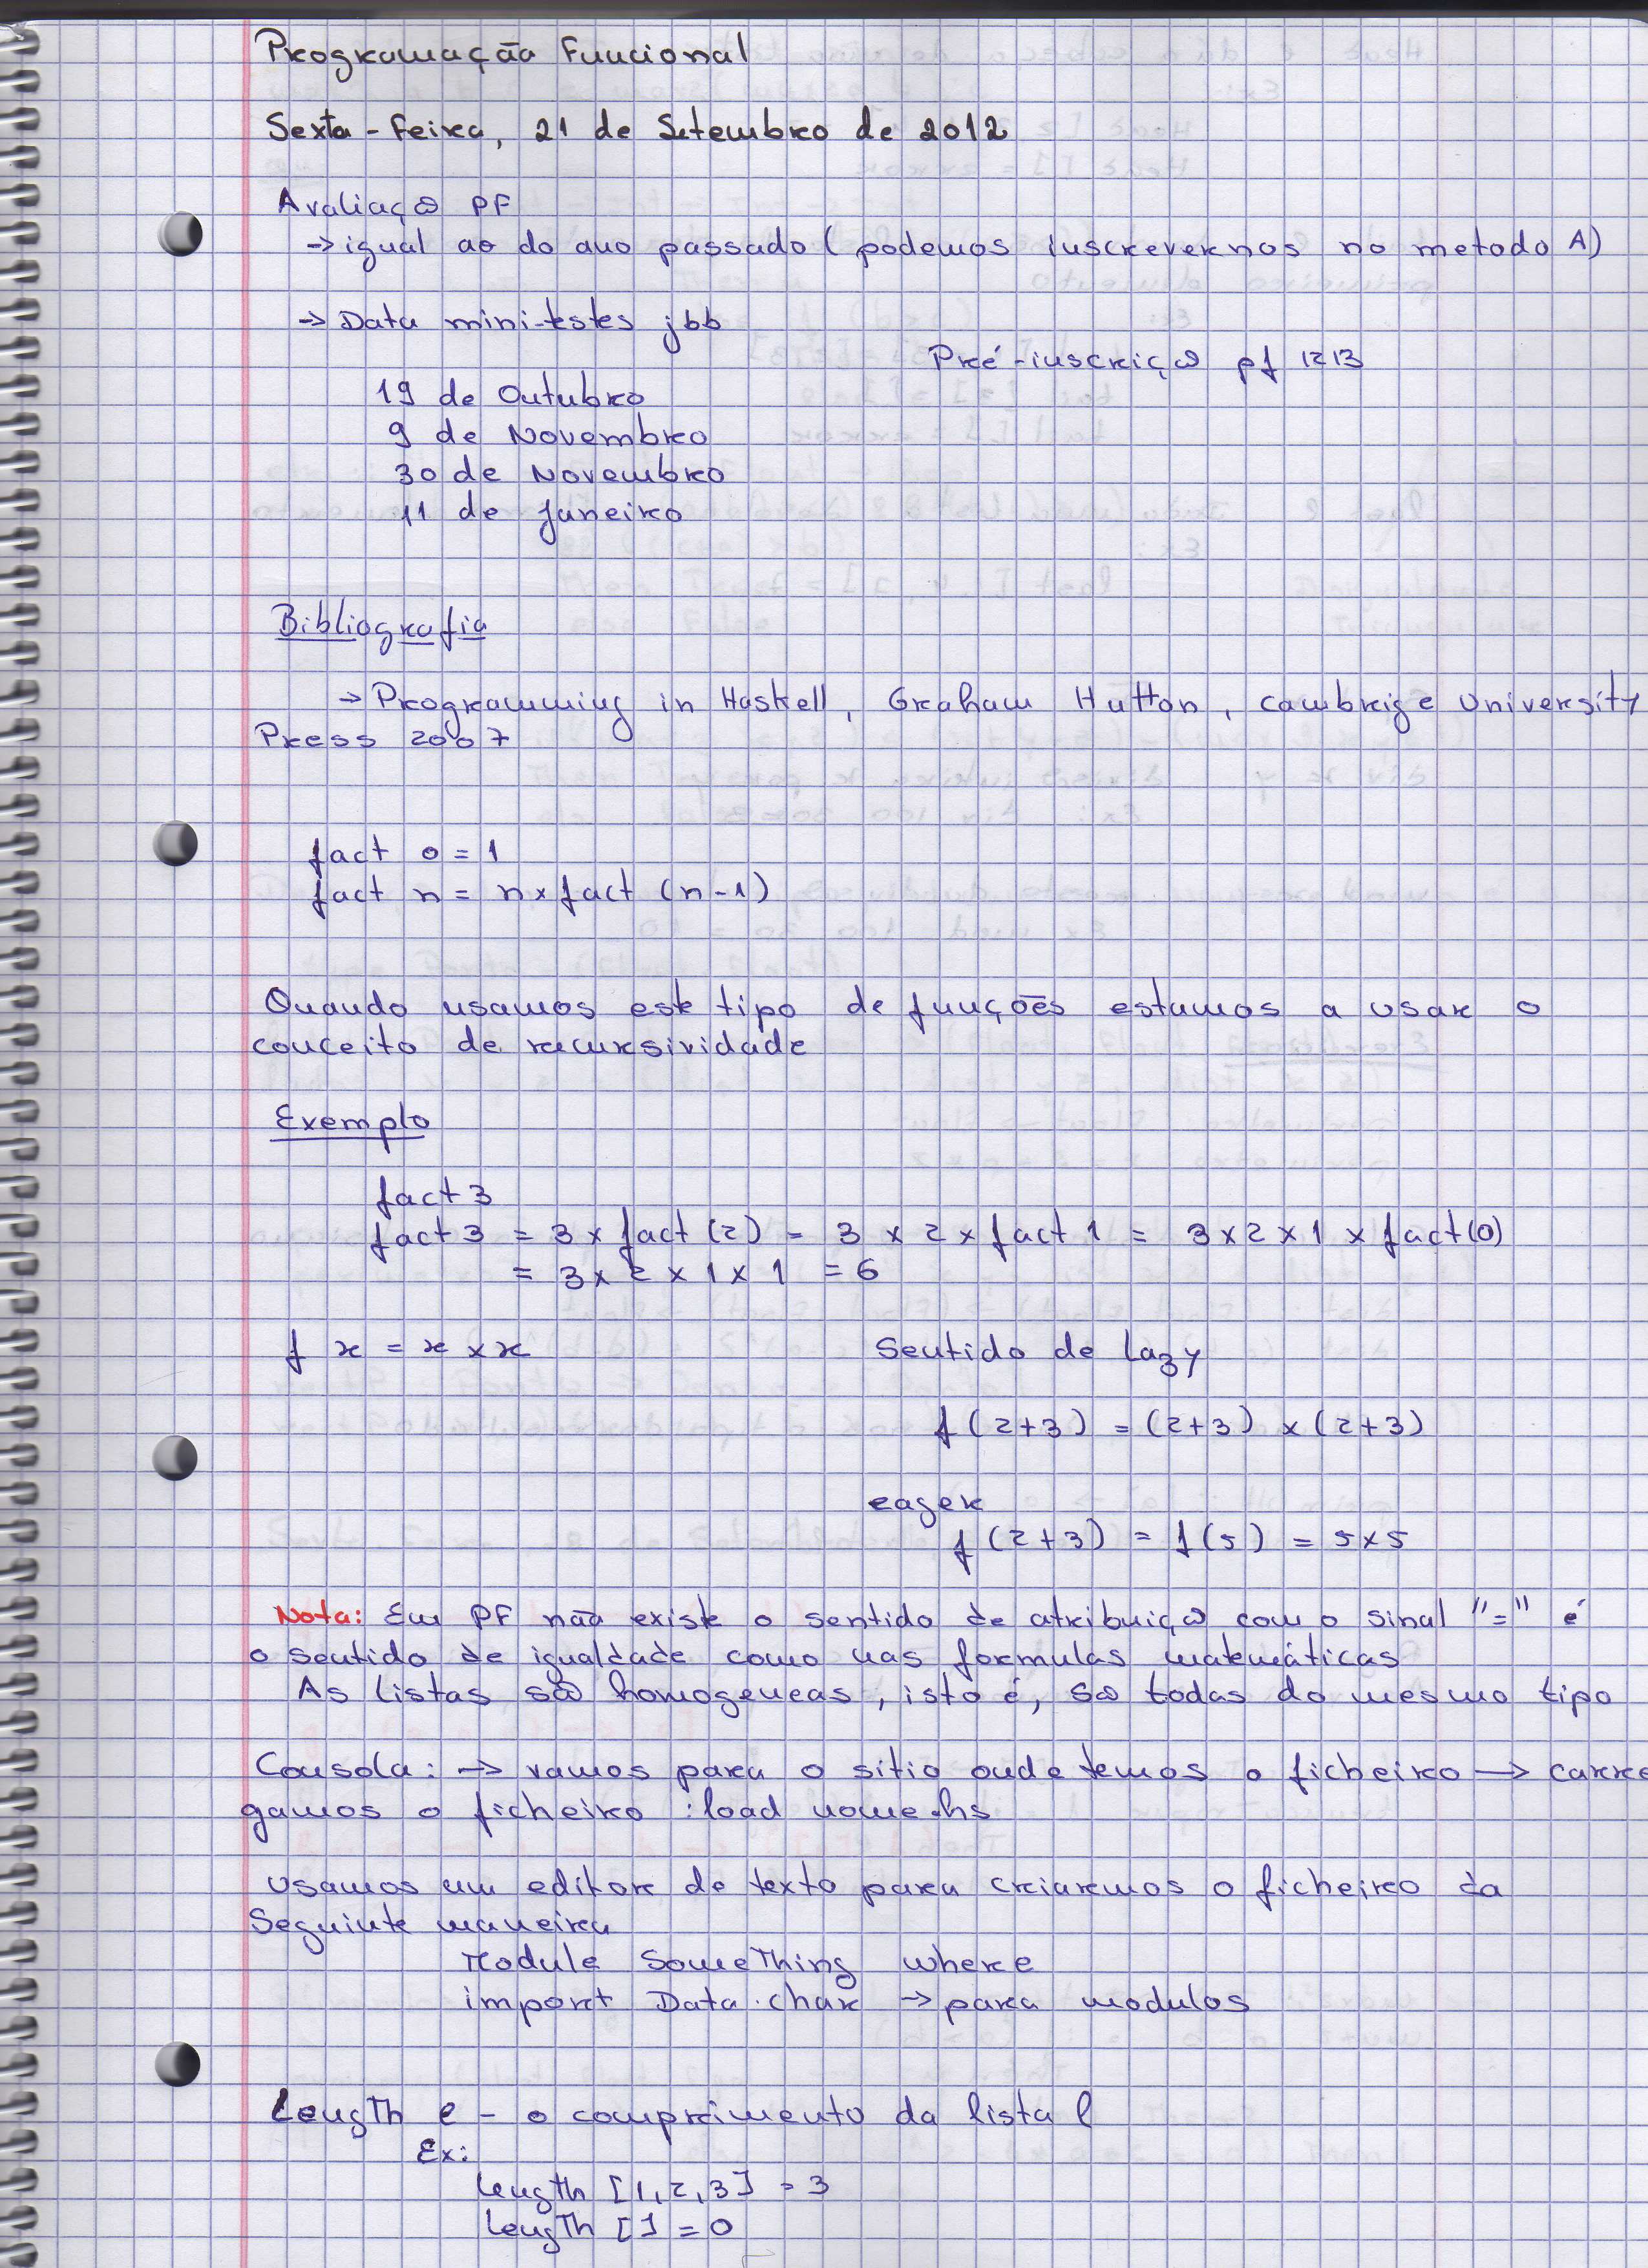 Programação Funcional
Sexta-Feira, 21 de Setembro de 2012
Avaliação PF
→ igual ao do ano passado (podemos inscrevernos no metodo A)
→ Data mini-testes jbb
Pré-inscrição pf 1213
19 de Outubro
9 de Novembro
30 de Novembro
11 de Janeiro
Bibliografia
→ Programming in Haskell, Graham Hutton, Cambrige University
Press 2007
fact 0 = 1
fact n = n x fact (n-1)
Quando usamos este tipo de funções estamos a usar o
conceito de recursividade
Exemplo
fact 3
fact 3 = 3 x fact (2) = 3 x 2 x fact 1 = 3 x 2 x 1 x fact(0)
= 3 x 2 x 1 x 1 = 6
f x = x x x
Sentido de Lazy
f (2+3) = (2+3) x (2+3)
eager
f (2+3) = f(5) = 5x5
Nota: Em PF não existe o sentido de atribuição com o sinal "=" é
o sentido de igualdade como nas formulas matemáticas
As listas são homogeneas, isto é, são todas do mesmo tipo
Consola: → vamos para o sitio onde temos o ficheiro → carre
gamos o ficheiro :load nome.hs
Usamos um editor de texto para criaremos o ficheiro da
Seguinte maneira
Module SomeThing where
import Data.char → para modulos
Length l - o comprimento da lista l
Ex:
Length [1,2,3] = 3
Length [] = 0